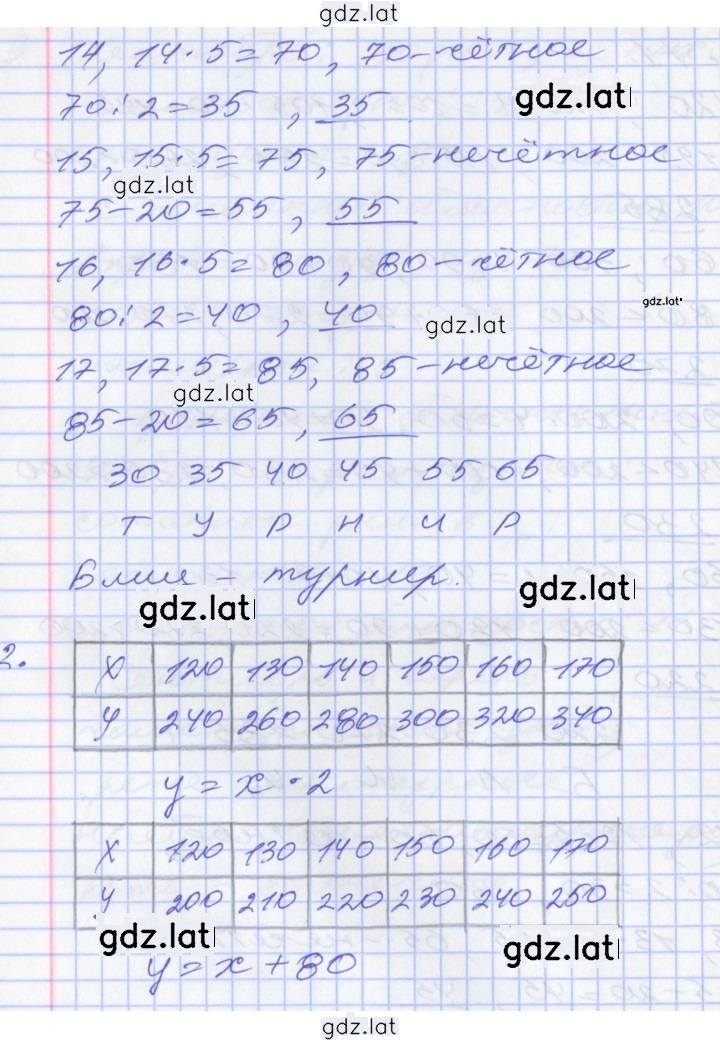 gdz.lat
14, 14·5=70, 70-чётное
gdz.lat
70:2=35, 35
15, 15·5=75, 75-нечётное
gdz.lat
75-20=55, 55
16, 16·5=80, 80-чётное
gdz.lat
80:2=40, 40
gdz.lat
17, 17·5=85, 85-нечётное
gdz.lat
85-20=65, 65
30 35 40 45 55 65
Т У Р Н И Р
Блиц-турнир.
gdz.lat
gdz.lat
2.
x 120 130 140 150 160 170
y 240 260 280 300 320 340
y=x·2
x 120 130 140 150 160 170
y 200 210 220 230 240 250
gdz.lat
gdz.lat
y=x+80
gdz.lat